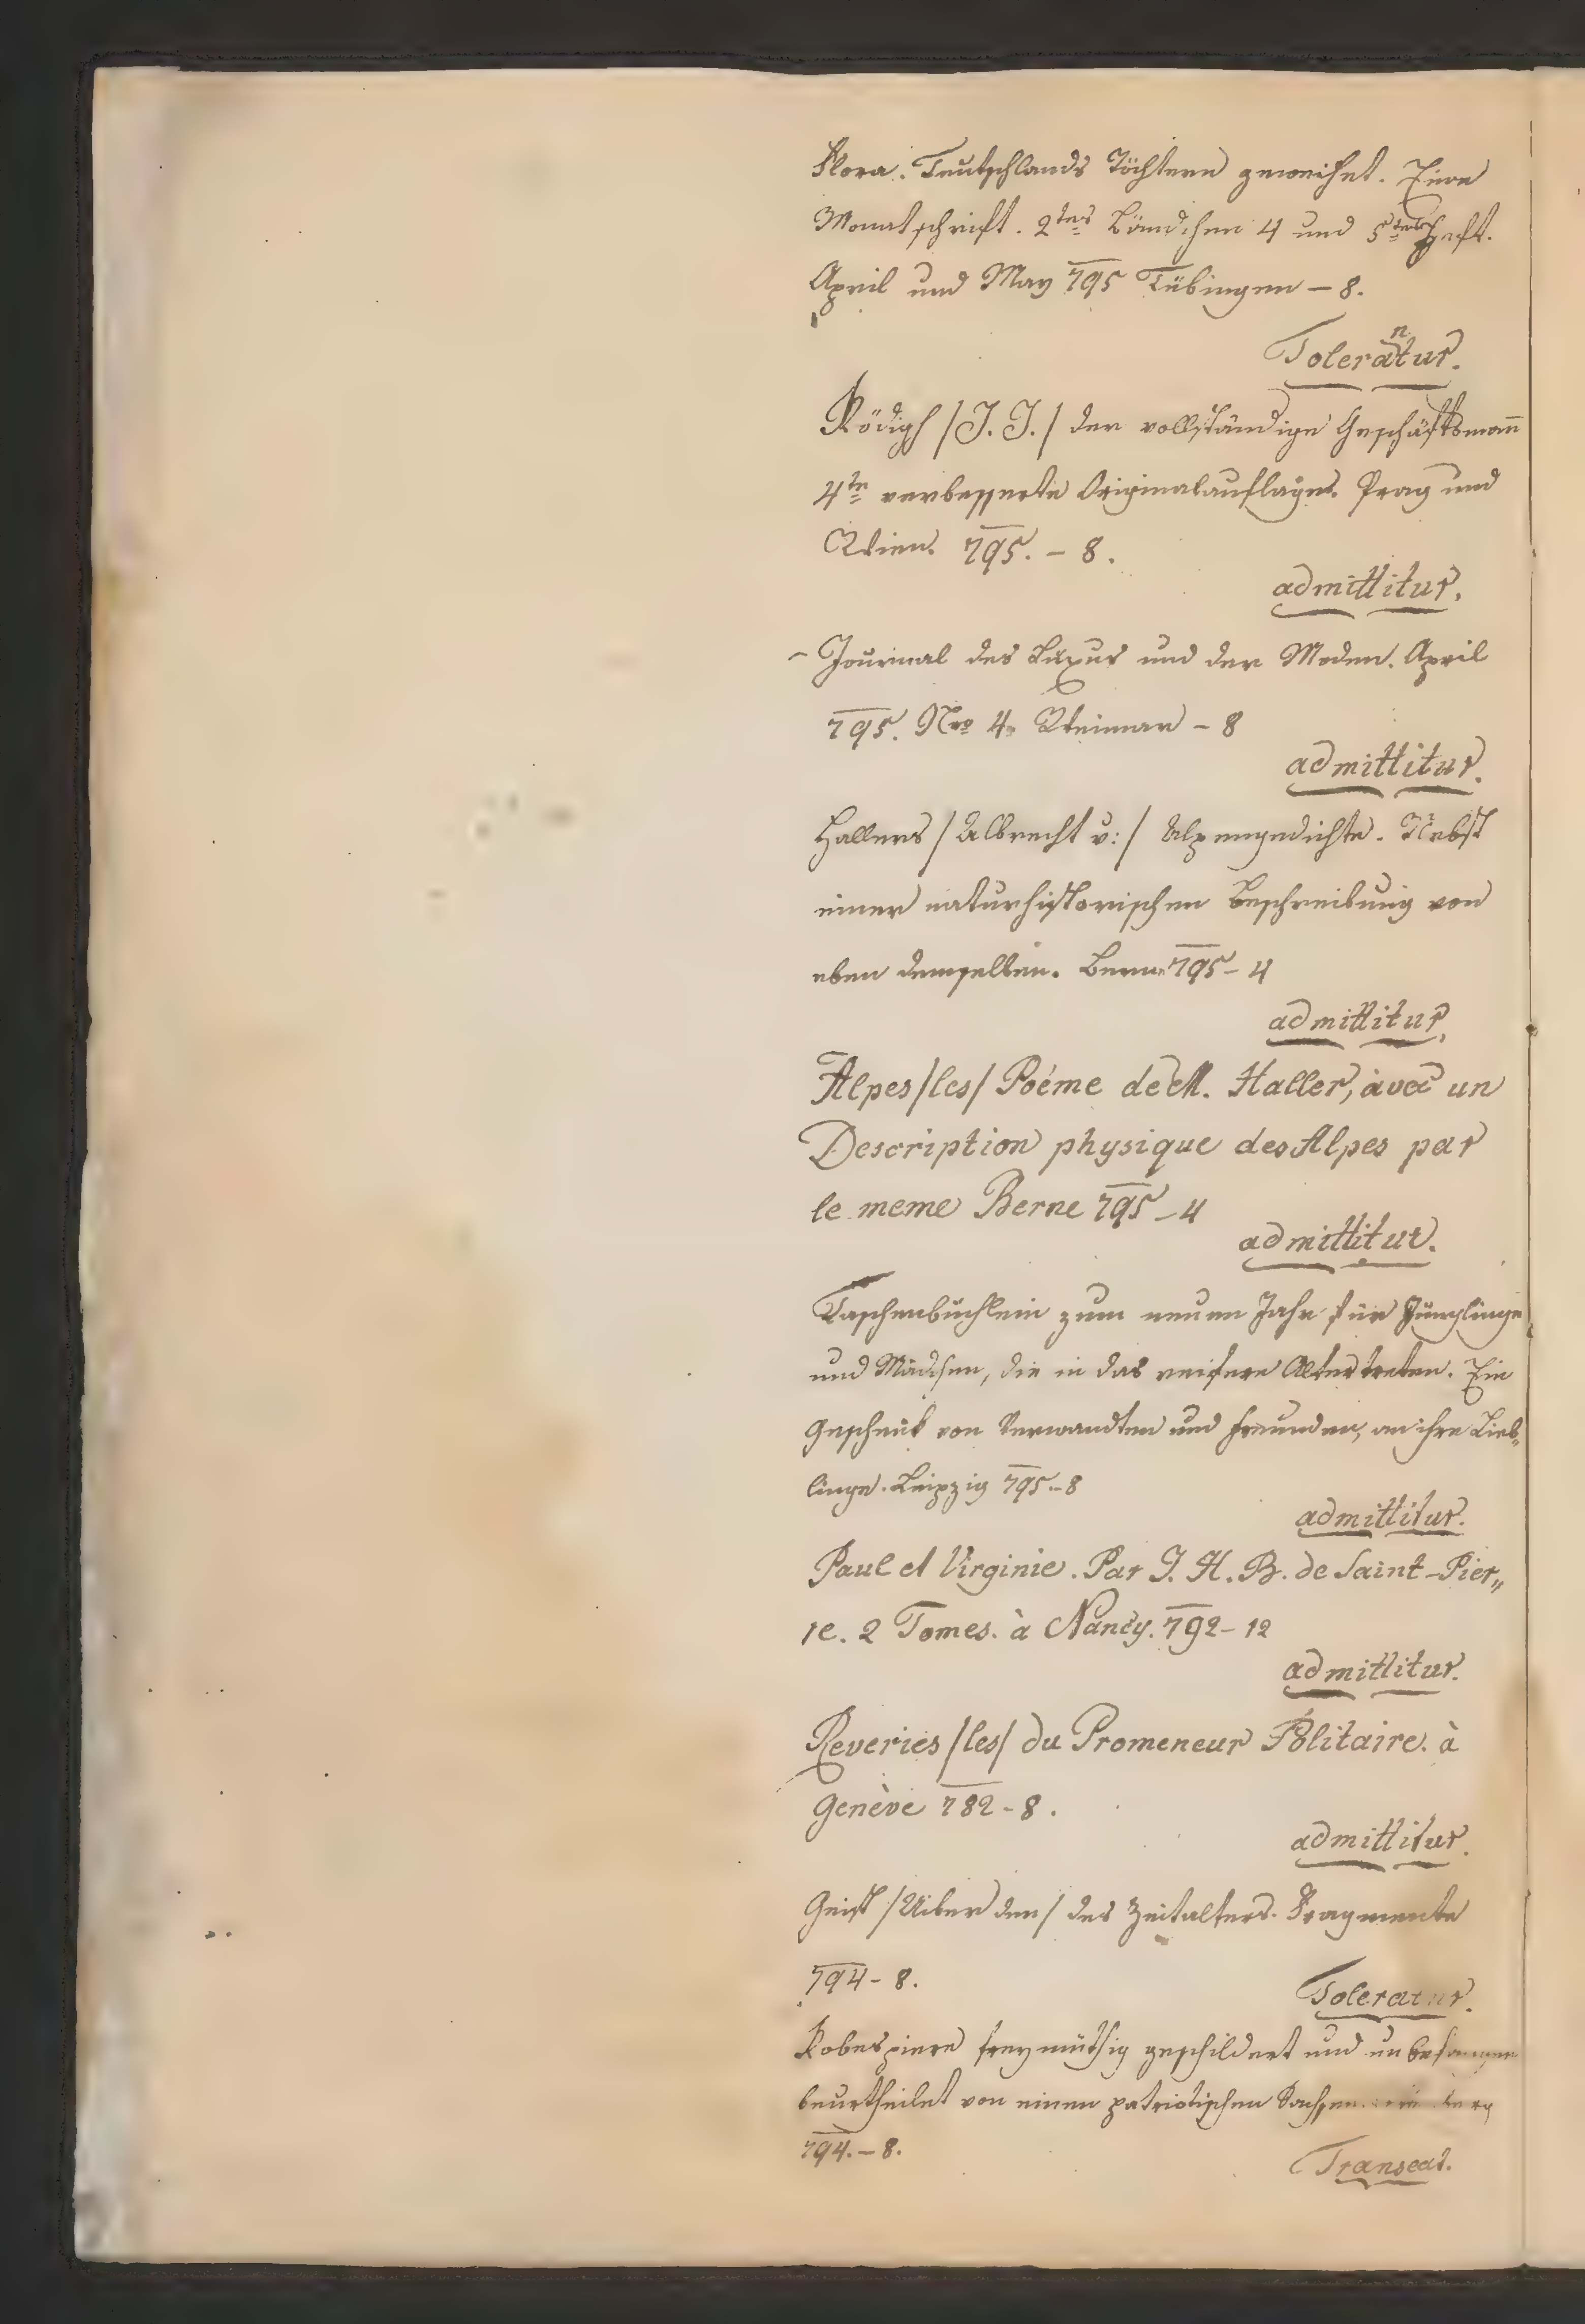 Flora. Teutschlands Töchtern geweihet. Eine
Monatschrift. 2tes Bändchen 4 und 5tes Heft.
April und May 795 Tübingen – 8.
Tolerantur.
Rödigh /J. J./ der vollständige Geschäftsmañ
4te verbesserte Originalauflage. Prag und
Wien. 795. – 8.
admittitur.
Journal des Luxus und der Moden. April
795. Nro 4. Weimar – 8
admittitur.
Hallers /Albrecht v:/ Alpengedichte. Nebst
einer naturhistorischen Beschreibung von
eben demselben. Bern 795 – 4
admittitur.
Alpes /les/ Poéme de M. Haller, avec un
Description physique des Alpes par
le meme Berne 795 – 4
admittitur.
Taschenbuchlein zum neuen Jahr für Jünglinge
und Mädchen, die in das reifere Alter treten. Ein
Geschenk von Verwandten und Freunden, an ihre Lieb„
linge. Leipzig 795 – 8
admittitur.
Paul et Virginie. Par J. H. B. de Saint-Pier„
re. 2 Tomes. à Nancy. 792 – 12
admittitur.
Reveries /les/ du Promeneur Politaire. à
Genève 782 – 8.
admittitur.
Geist /Uiber den/ des Zeitalters. Fragmente
794 – 8.
Toleratur.
Robespiere freymüthig geschildert und unbefangen
beurtheilet von einem patriotischen Sachsen.
794. – 8.
Transeat.